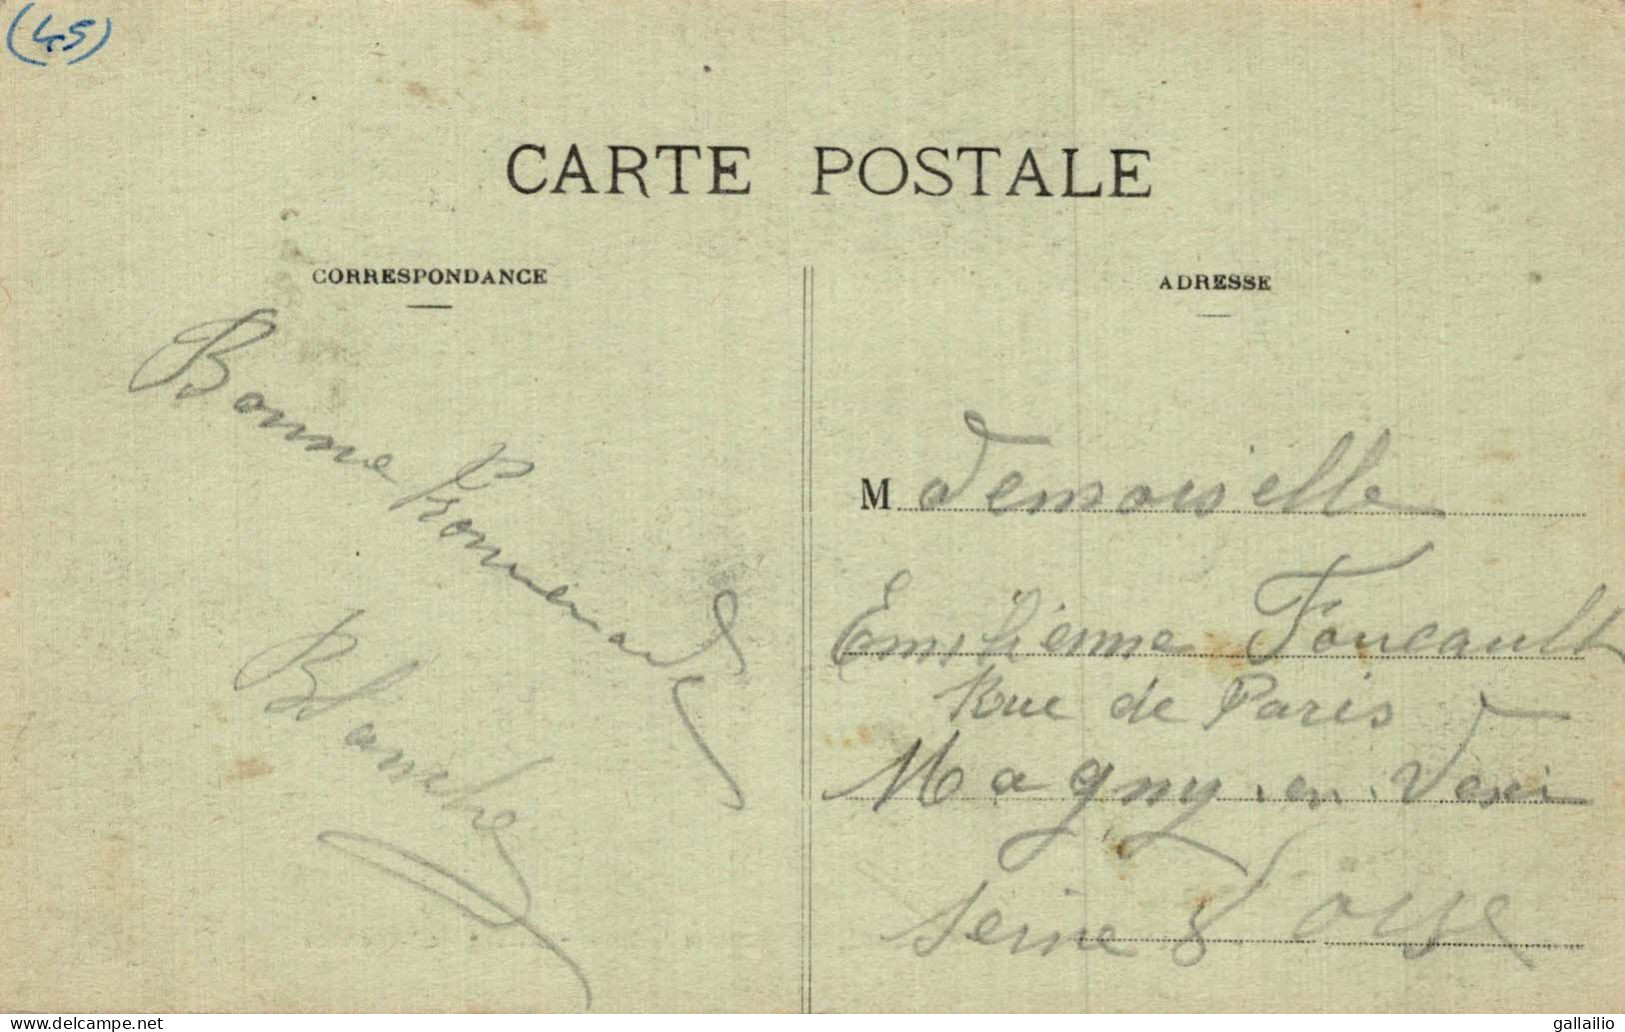 (45)
CARTE POSTALE
CORRESPONDANCE
ADRESSE
Bonne Promenade
Blanche
Mdemoiselle
Emilienne Foucault
Rue de Paris
Magny. en. Vexin
Seine & Oise
www.delcampe.net
gallailio